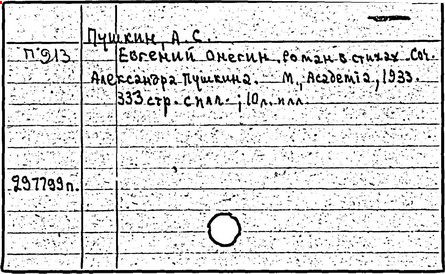 Пушкин, А. С.
П 913 Евгений Онегин. Роман в стихах. Соч.
Александра Пушкина. М., Academia, 1933.
333 стр. с илл.; 10 л. илл.
297799 п.